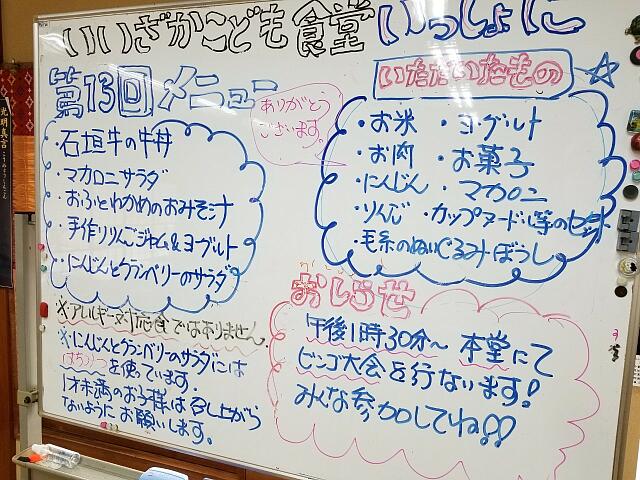 いいざかこども食堂 いっしょに
第13回メニュー
・石垣牛の牛丼
・マカロニサラダ
・おふとわかめのおみそ汁
・手作りりんごジャム&ヨーグルト
・にんじんとクランベリーのサラダ
※アレルギー対応食ではありません。
※にんじんとクランベリーのサラダには
はちみつを使っています。
1才未満のお子様は召し上がら
ないようにお願いします。
ありがとう
ございます。
いただいたもの
・お米 ・ヨーグルト
・お肉 ・お菓子
・にんじん ・マカロニ
・りんご ・カップヌードル等のセット
・毛糸のぬいぐるみぼうし
おしらせ
午後1時30分~ 本堂にて
ビンゴ大会を行ないます!
みんな参加してね!!
光明真言
こうみょうしんごん